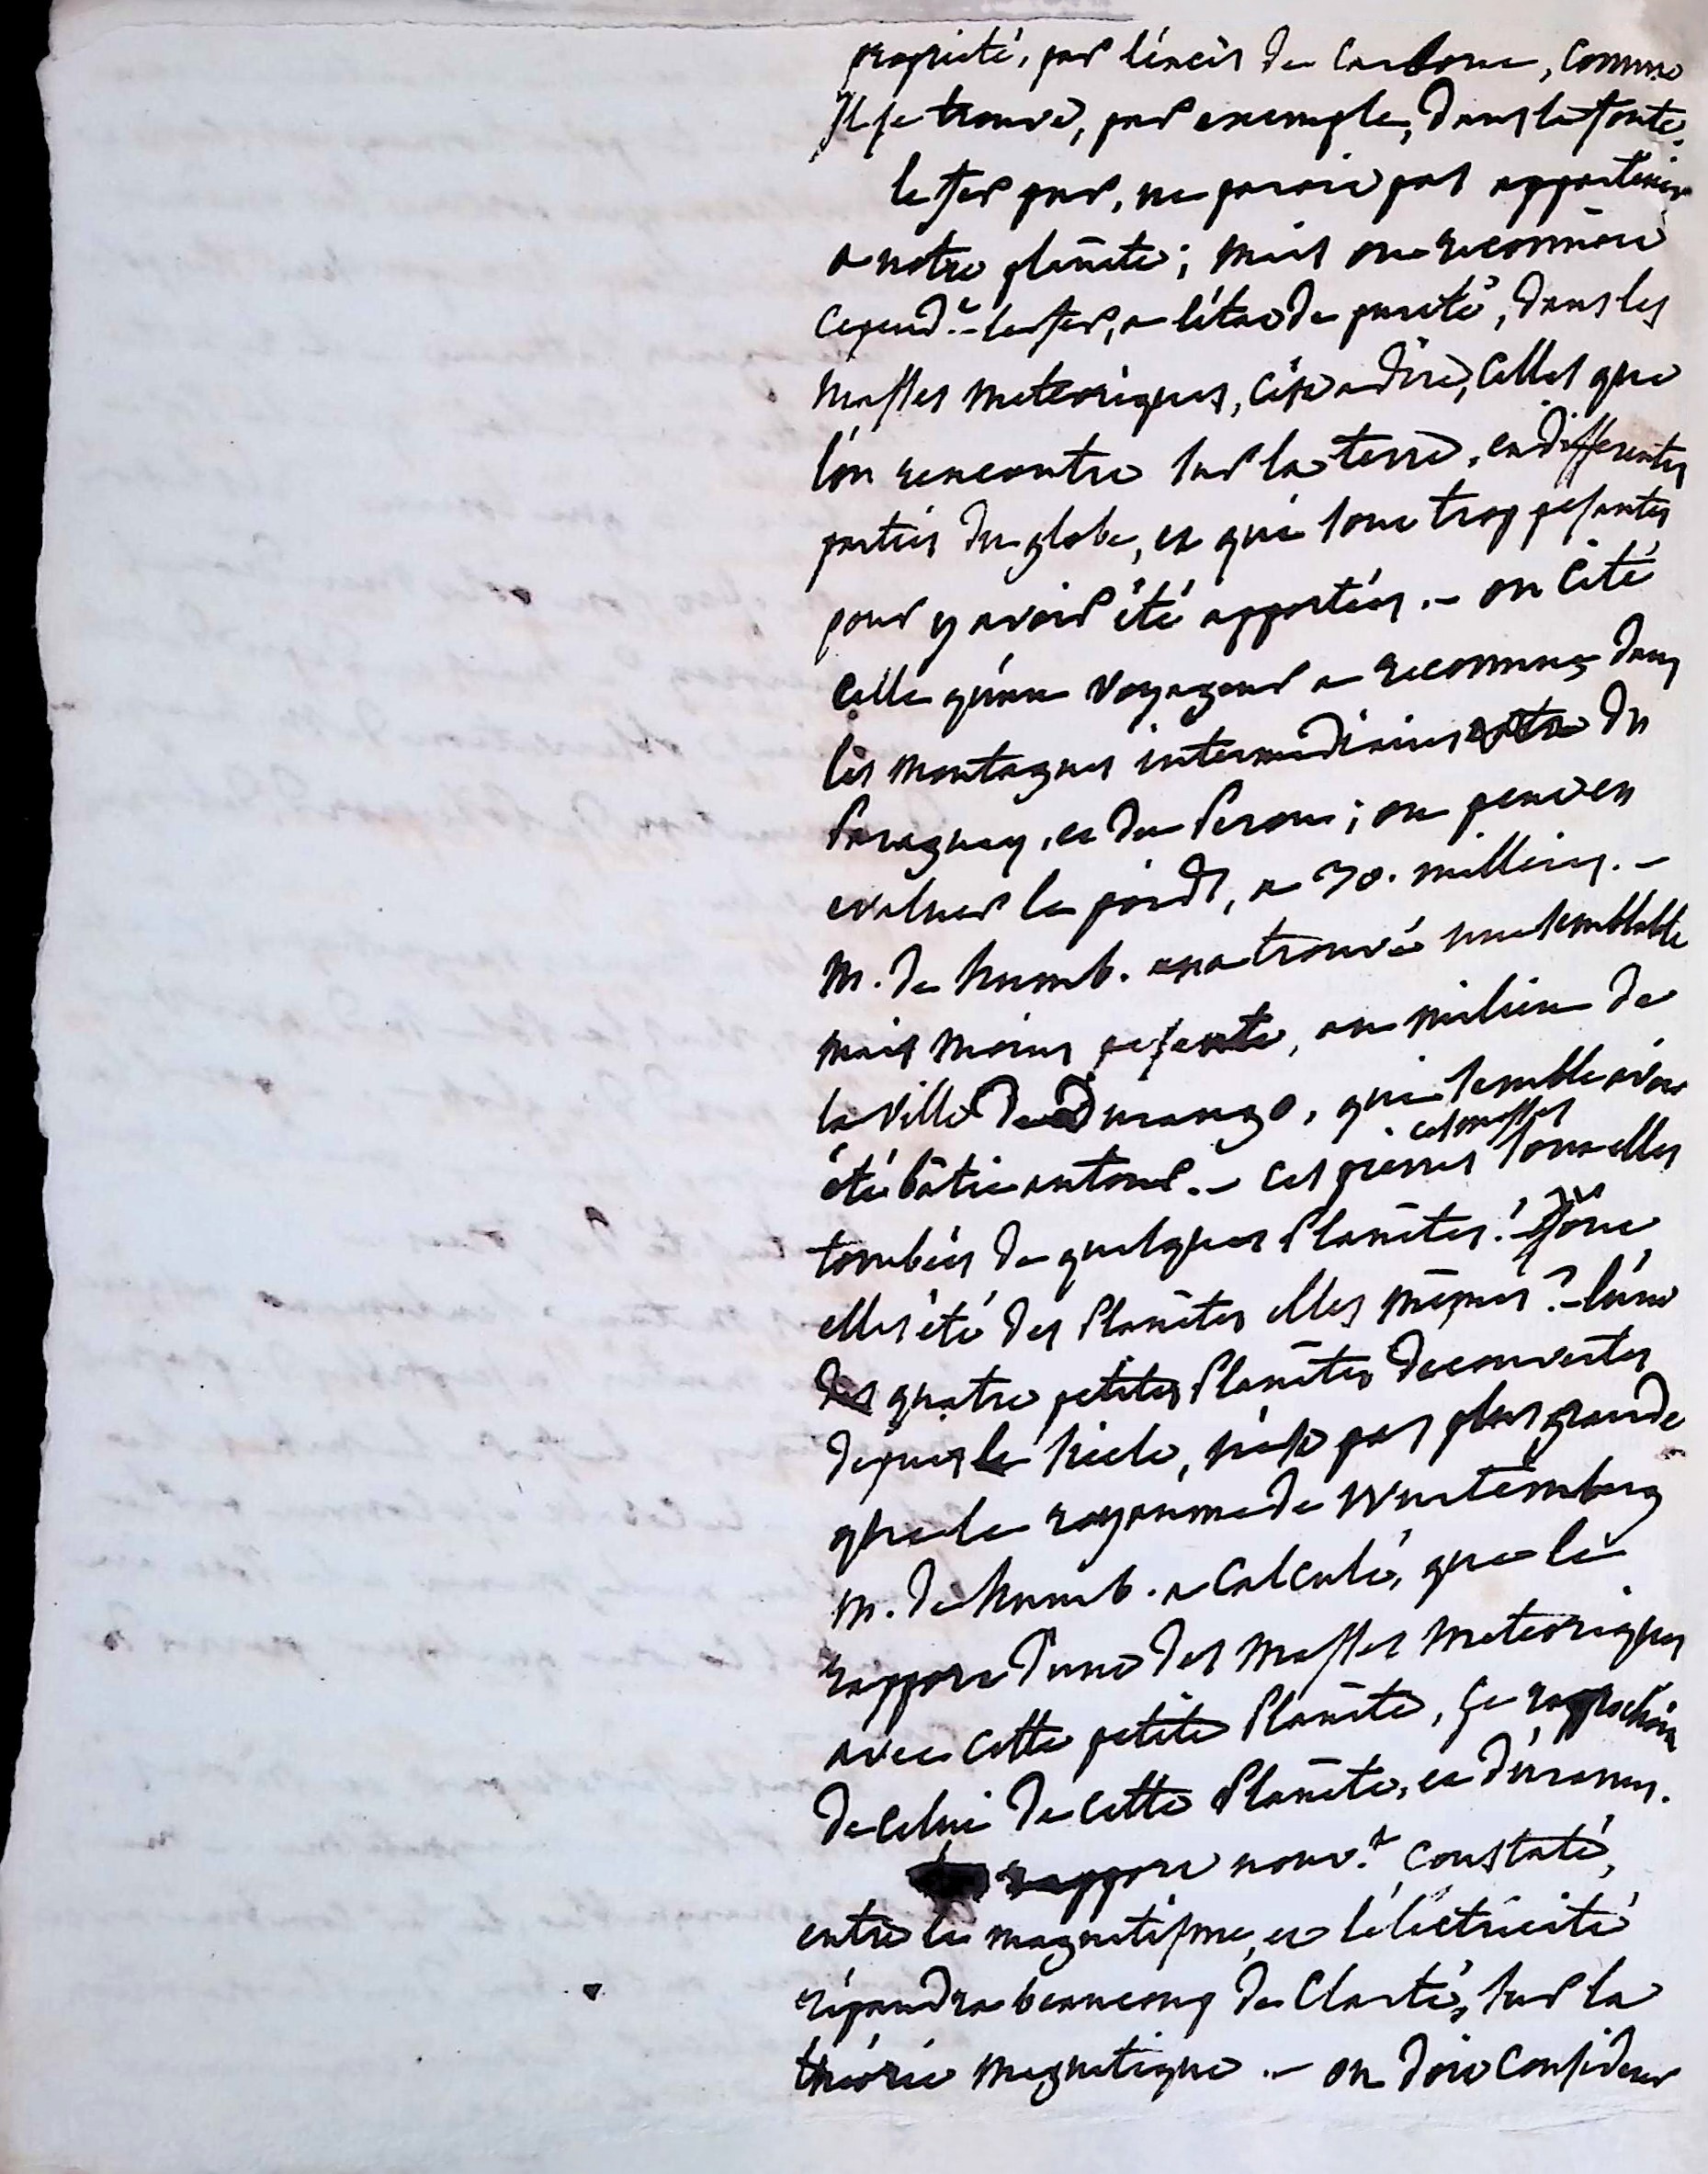 propriété, par l'éxcès de Carbone, Comme
Il se trouve, par exemple, dans la fonte.
le fer pur, ne paroit pas appartenir
a notre planète; mais on reconnoit
cepend.t le fer, a l'état de pureté, dans les
masses meteoriques, c'est a dire, celles que
l'on rencontre sur la terre, en differentes
parties du globe, et qui sont trop pesantes
pour y avoir été apportées. – on cite
Celle qu'un voyageur a reconnue dans
les montagnes intermediaires du
Paraguay, et du Perou; on peut en
evaluer le poids, a 30. milliers. –
M. de humb. en a trouvé une semblable
mais moins pesante, au milieu de
la ville de Durango, qui semble avoir
été bâtie autour. – ces pierres ces masses sont elles
tombées de quelques Planètes! ont
elles été des Planètes elles mêmes? – l'une
des quatre petites Planètes decouvertes
depuis le siecle, n'est pas plus grande
que le royaume de Wurtemberg
M. de humb. a calculé, que le
rapport d'une des masses meteoriques
avec cette petite Planète, se rapprochoit
de celui de cette Planète, et d'uranus.
rapport nouv.t constaté,
entre le magnetisme, et l'éléctricité
répandra beaucoup de Clarté, sur la
théorie magnetique. – on doit considerer